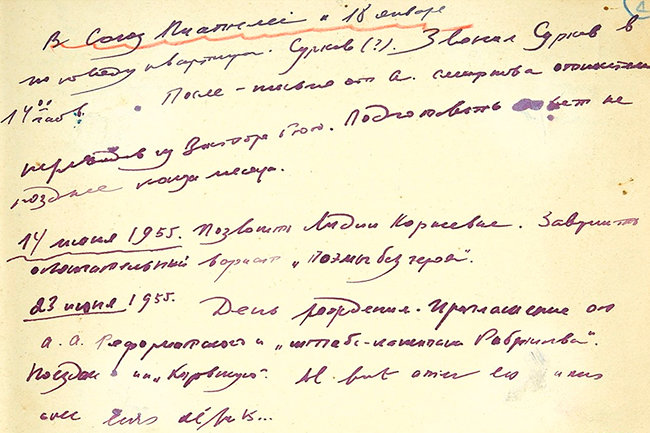 4
В Союз Писателей к 18 января
по поводу квартиры. Сурков (?). Звонил Сурков в
14 00 часов. После – письмо от А. Смирнова относительно
переводов из Виктора Гюго. Подготовить ответ не
позднее конца месяца.
14 июня 1955. Позвонить Лидии Корневне. Завершить
окончательный вариант „Поэмы без героя".
23 июня 1955. День рождения. Приглашение от
А. А. Реформатского и „штабс-капитана Рыбникова".
Поездка на „Кировскую". Il faut aimer les amis
avec leurs défauts...